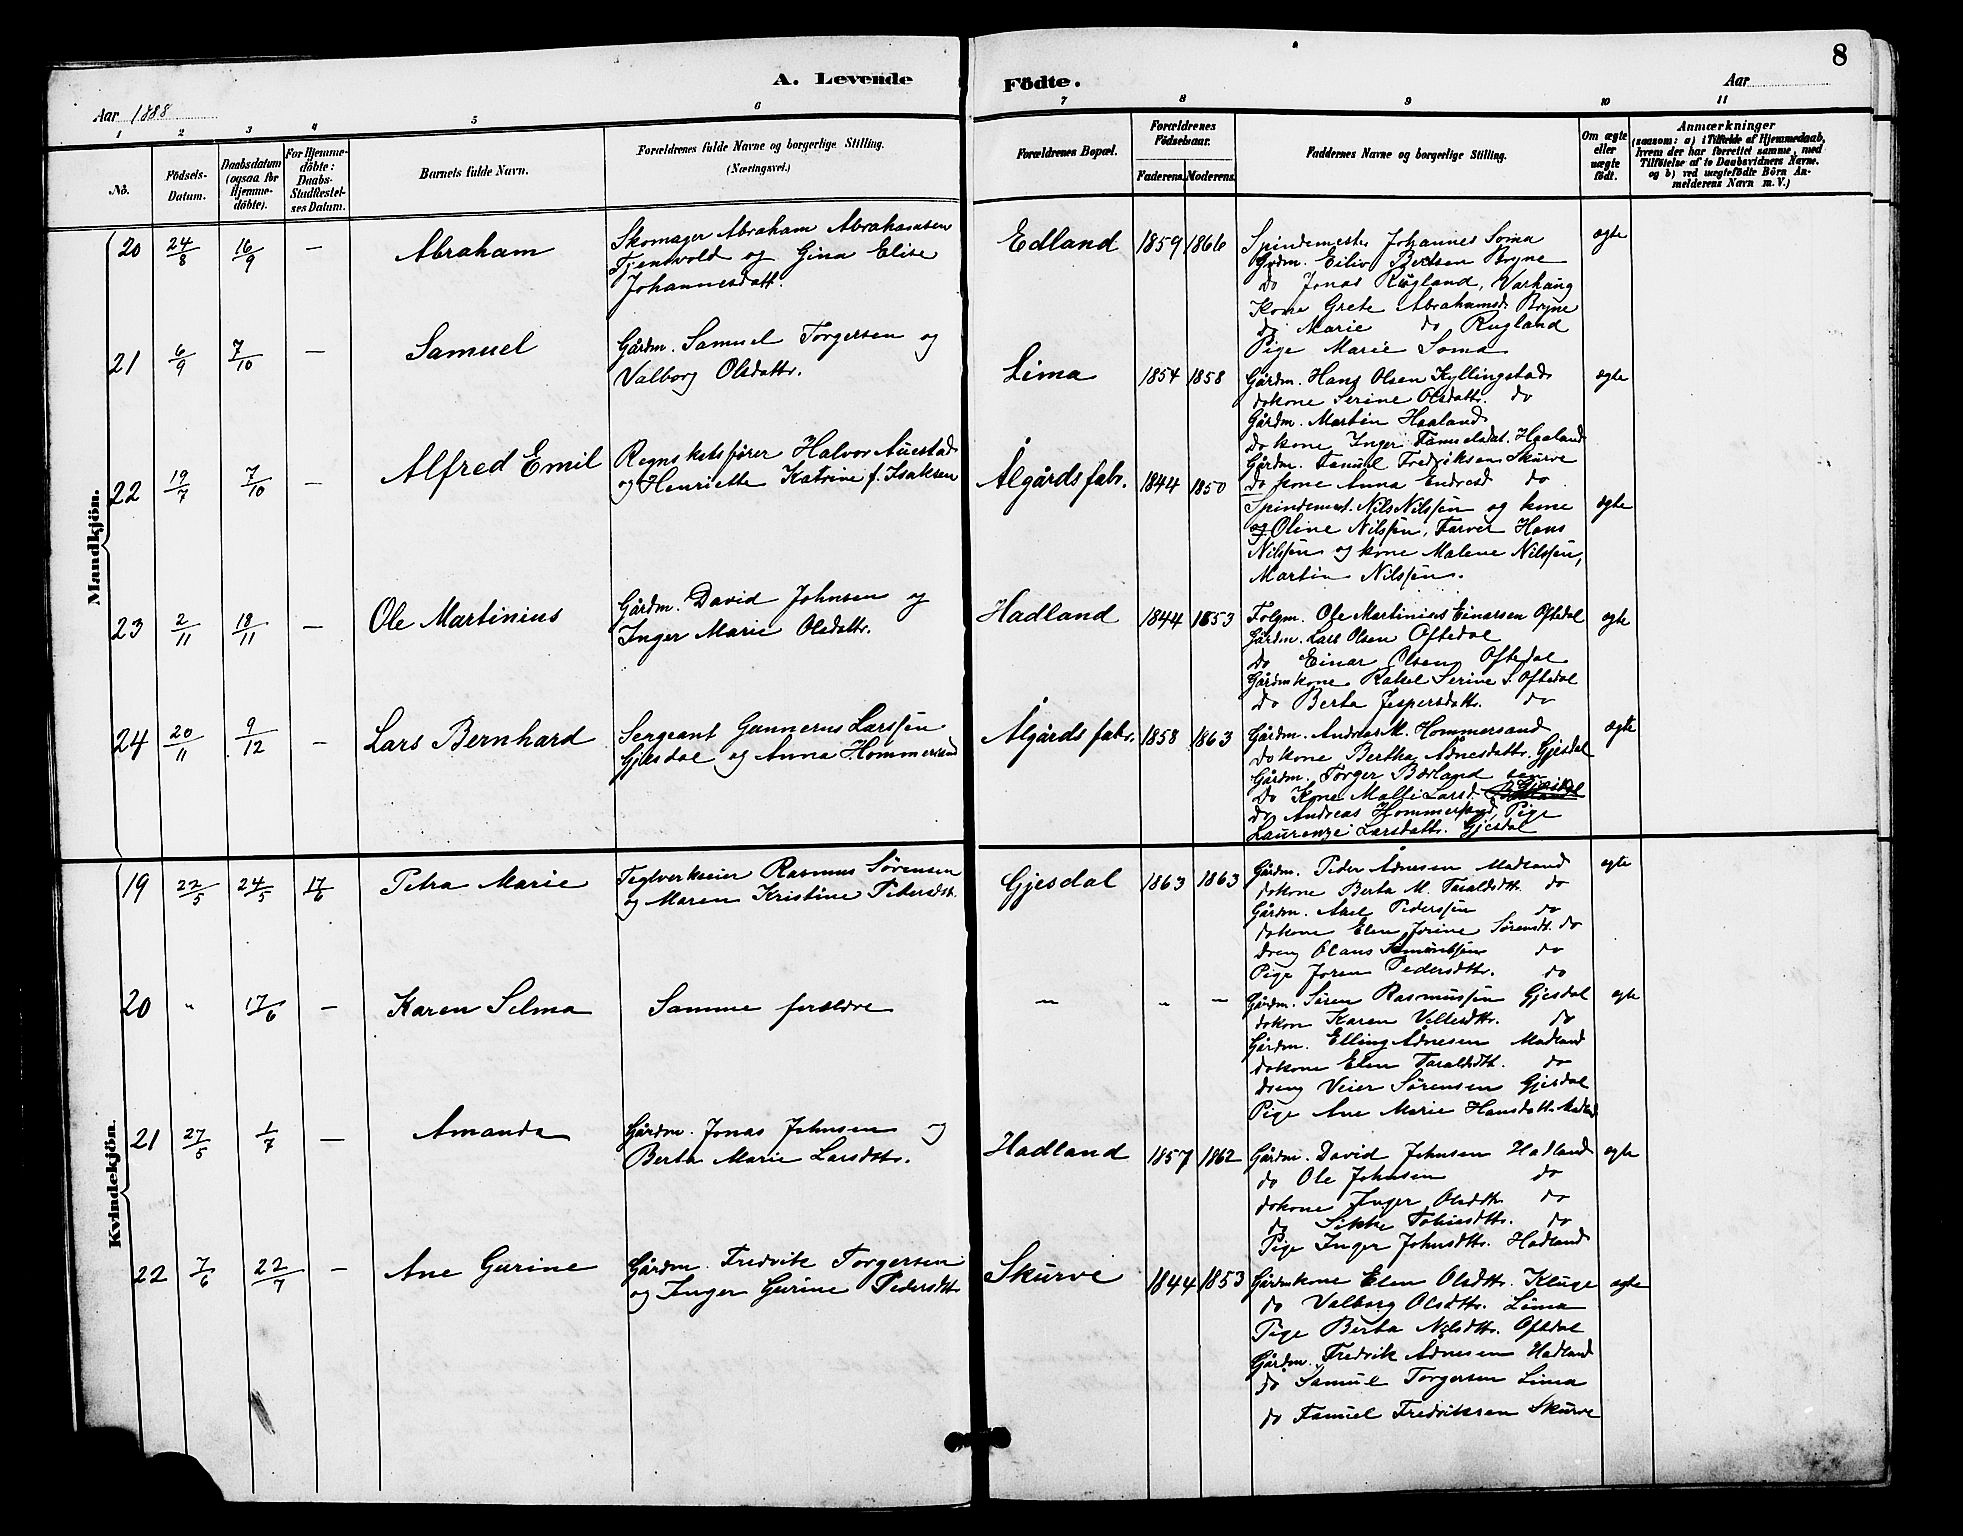 8
A. Levende Födte.
Aar 1888
Aar
1 2 3 4 5 6 7 8 9 10 11
No.
Födsels-Datum.
Daabsdatum (ogsaa for Hjemme-döbte).
For Hjemme-döbte: Daabs-Stadfestel-ses Datum.
Barnets fulde Navn.
Forældrenes fulde Navne og borgerlige Stilling.
(Næringsvei.)
Forældrenes Bopæl.
Forældrenes Födselsaar.
Faderens. Moderens.
Faddernes Navne og borgerlige Stilling.
Om ægte eller uægte födt.
Anmærkninger
(saasom: a) i Tilfælde af Hjemmedaab, hvem der har forrettet samme, med Tilföielse af to Daabsvidners Navne. og b) ved uægtefödte Börn An-melderens Navn m. V.)
Mandkjön.
20 24/8 16/9 — Abraham
Skomager Abraham Abrahamsen
Tjensvold og Gina Elise
Johannesdatt.
Edland 1859 1866
Spindemester Johannes Soma
Gdm. Eiliv Bertsen Bryne
do Jonas Rugland, Varhaug
Kone Grete Abrahamsd. Bryne
do Marie do Rugland
Pige Marie Soma
ægte
21 6/9 7/10 — Samuel
Gårdm. Samuel Torgersen og
Valborg Olsdattr.
Lima 1854 1858
Gårdm. Hans Olsen Kyllingstad
do kone Serine Olsdattr. do
Gårdm. Martin Haaland
do kone Inger Samuelsdat. Haaland
Gårdm. Samuel Fredriksen Skurve
do kone Anna Endresd do
ægte
22 19/7 7/10 — Alfred Emil
Regnskabsfører Halvor Auestad
og Henriette Katrine f. Isaksen
Ålgårds fabr. 1844 1850
Spindemest. Nils Nilssen og kone
og Oline Nilssen, Farver Hans
Nilssen og kone Malene Nilssen,
Martin Nilssen.
ægte
23 2/11 18/11 — Ole Martinius
Gårdm. David Johnsen og
Inger Marie Olsdattr.
Hadland 1844 1853
Folgm. Ole Martinius Einarsen Oftedal
Gårdm. Lars Olsen Oftedal
do Einar Olsen Oftedal
Gårdmkone Rakel Serine S. Oftedal
do Berta Jespersdattr. do
ægte
24 20/11 9/12 — Lars Bernhard
Sergeant Gunnerus Larssen
Gjesdal og Anna Hommersand
Ålgårds fabr. 1858 1863
Gårdm. Andreas M. Hommersand
do kone Bertha Ådnesdattr. Gjesdal
Gårdm. Torger Bærland sen
do Kone Malli Larsd. Gjesdal
do Andreas Hommersand, Pige
Laurenze Larsdattr. Gjesdal
ægte
Kvindekjön.
19 22/5 24/5 17/6 Petra Marie
Teglverkseier Rasmus Sørensen
og Maren Kristine Pedersdt.
Gjesdal 1863 1863
Gårdm. Peder Ådnesen Madland
do kone Berta M. Taraldsdtt. do
Gårdm. Axel Pederssen do
do kone Elen Jorine Sørensdt. do
dreng Olaus Simonssen do
Pige Joren Pedersdttr. do
ægte
20 " 17/6 — Karen Selma
Samme forældre
— " —
Gårdm. Søren Rasmussen Gjesdal
do kon Karen Vellesdttr. do
Gårdm. Elling Ådnesen Madland
do kone Elen Taraldsdtt. do
dreng Veier Sørensen Gjesdal
Pige Ane Marie Hansdatt. Madland
ægte
21 27/5 1/7 — Amanda
Gårdm. Jonas Johnsen og
Berta Marie Larsdttr.
Hadland 1857 1862
Gårdm. David Johnsen Hadland
do Ole Johnsen do
do kone Inger Olsdtt. do
do Sikke Tobiasdttr. do
Pige Inger Johnsdttr. Hadland
ægte
22 7/6 22/7 — Ane Gurine
Gårdm. Fredrik Torgersen
og Inger Gurine Pedersdttr.
Skurve 1844 1853
Gårdmkone Elen Olsdttr. Kluge
do Valborg Olsdttr. Lima
Pige Berta Nilsdttr. Oftedal
Gårdm. Fredrik Ådnesen Hadland
do Samuel Torgersen Lima
do Samuel Fredriksen Skurve
ægte